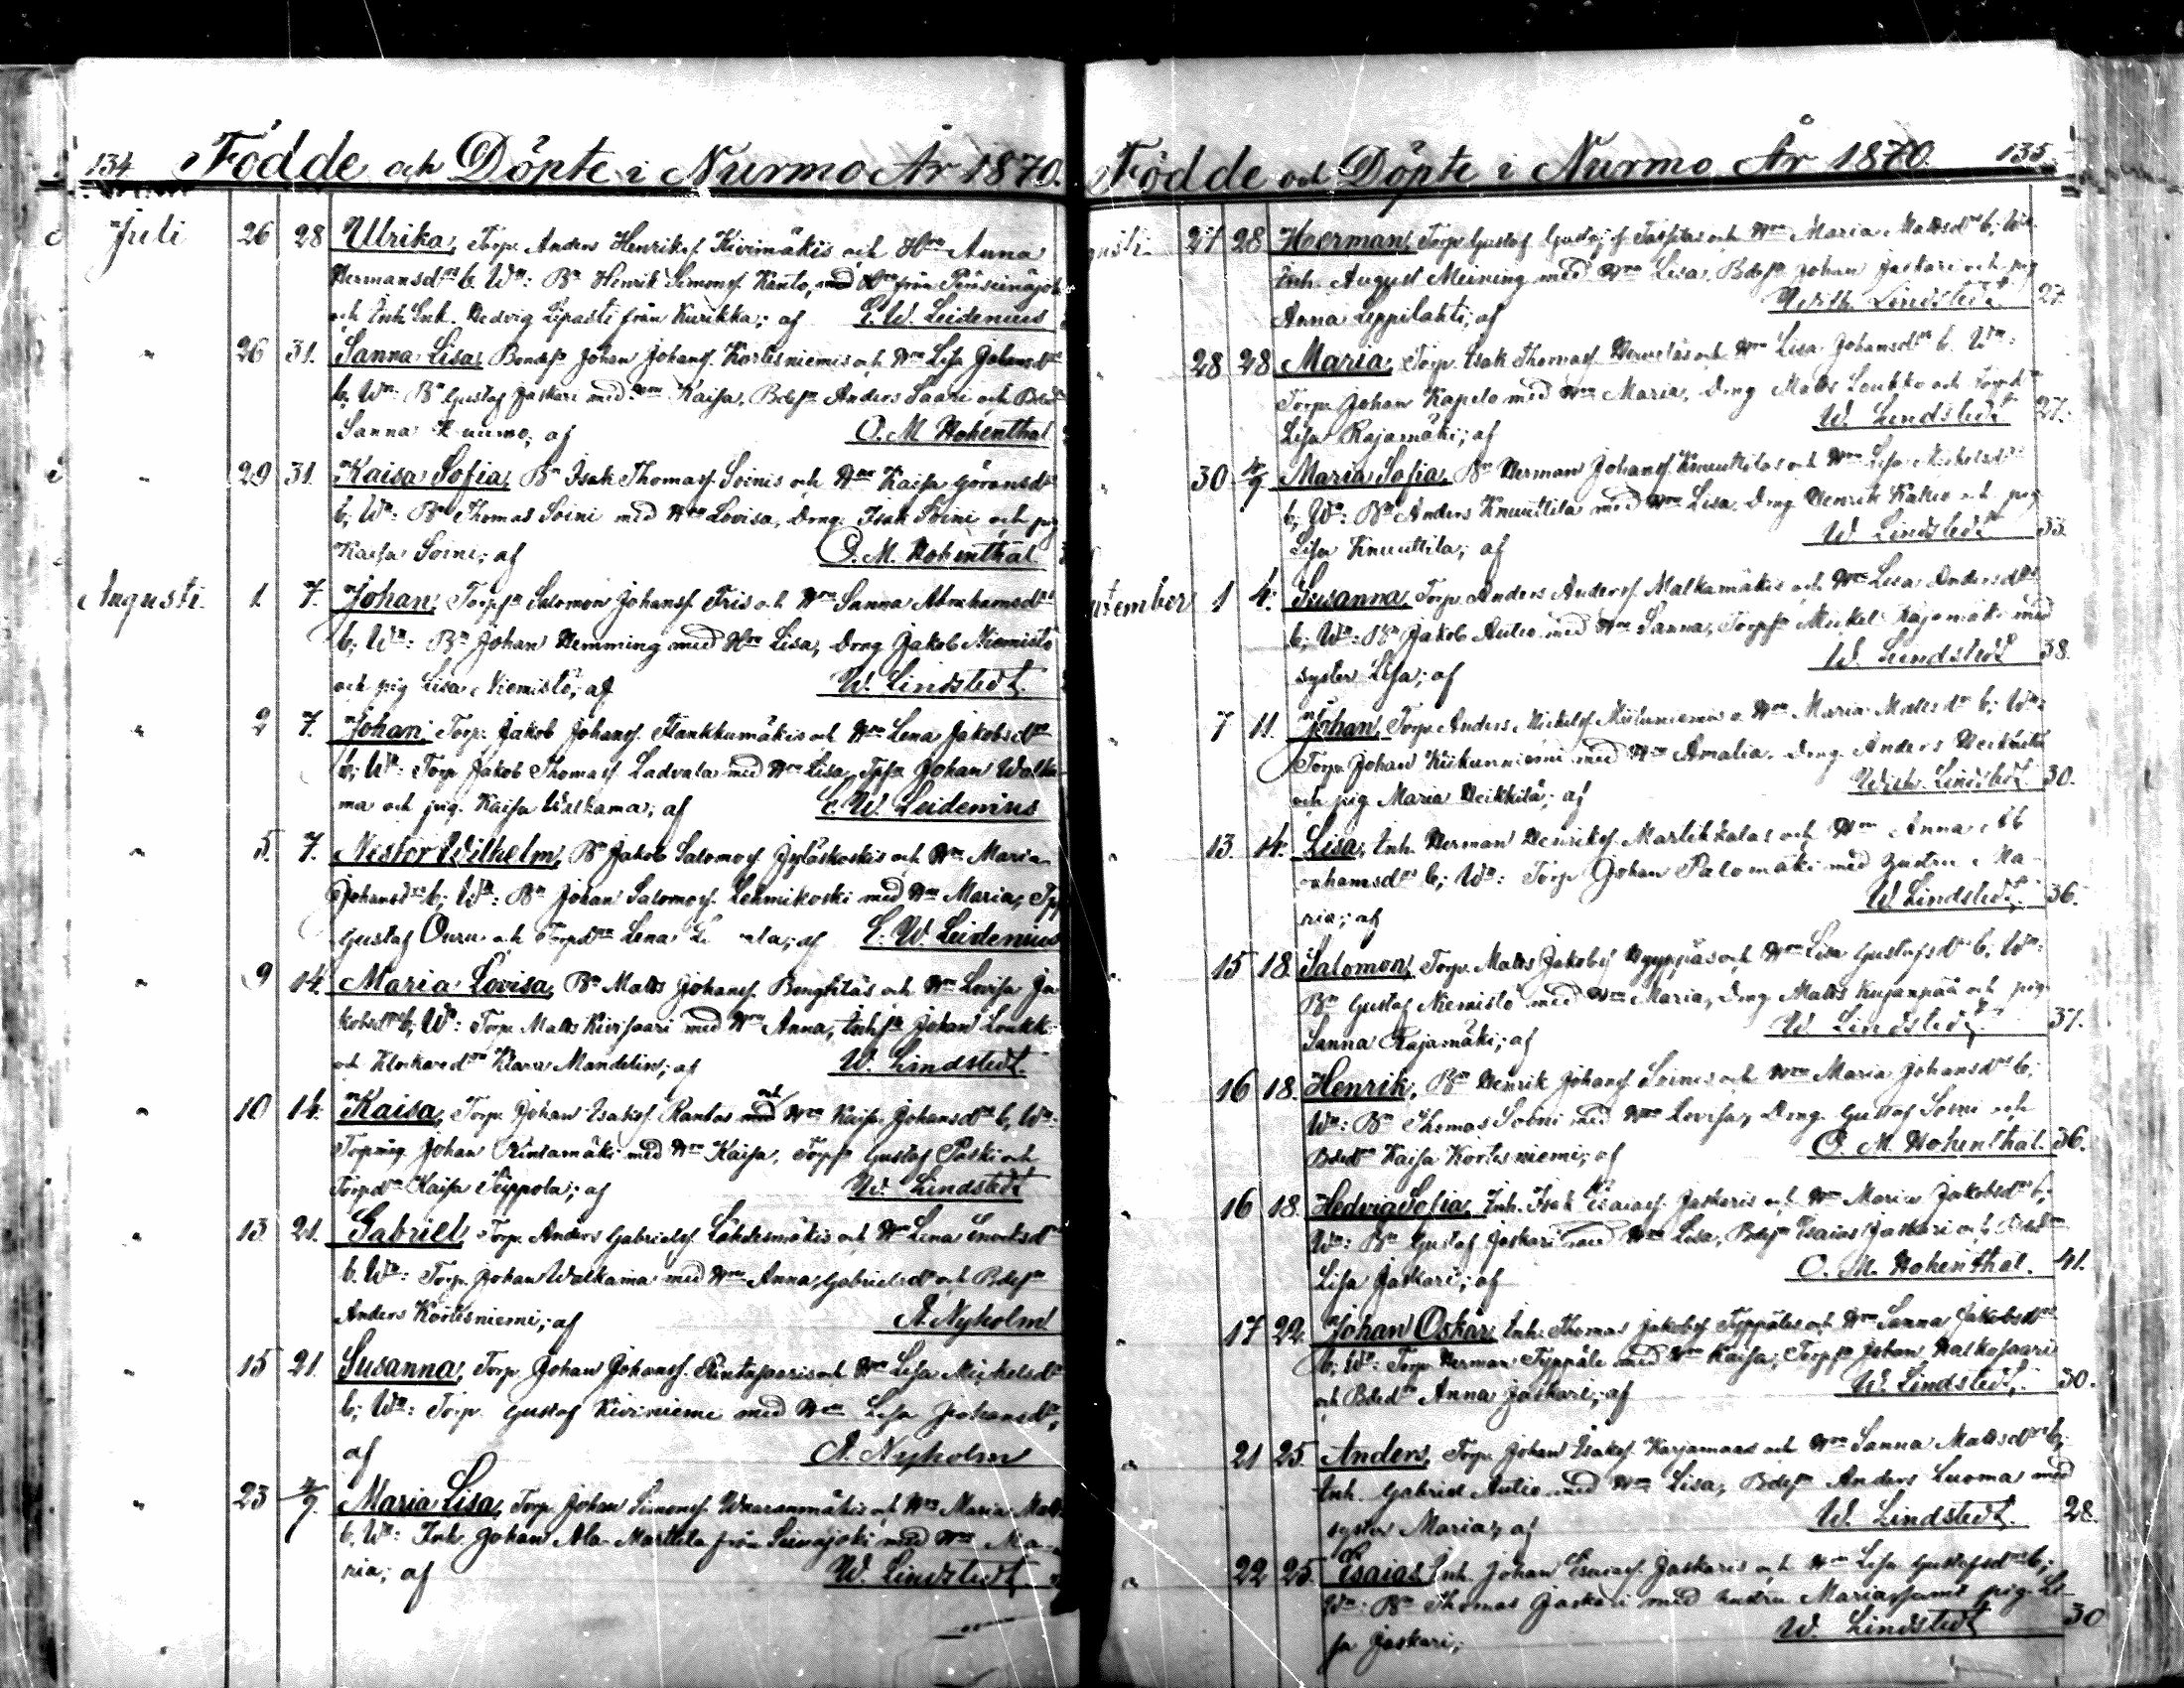 134 Födde och Döpte i Nurmo År 1870.
Juli 26 28 Ulrika, Torp. Anders Henrikss. Kivimäkis och Hru Anna
Hermansdr b. Wn: Bn Henrik Simonss. Kanto, med Hru från
och Inh. Enk. Hedvig Lipasti från Kurikka; af E. W. Leidenius
" 26 31. Sanna Lisa, Bondes. Johan Johanss. Kortesniemis och Hru Lisa Johansdr
b. Wn: Bn Gustaf Jaskari med Hru Kaisa, Bdesn Anders Saari och
Sanna af O. M Hohenthal
" 29 31. Kaisa Sofia, Bn Isak Thomass. Soinis och Hru Kaisa Göransdr
b; Wn: Bn Thomas Soini med Hru Lovisa, Dreng. Isak Soini och pig
Kaisa Soini; af O. M. Hohenthal
Augusti. 1. 7. Johan, Torpsn Salomon Johanss. Fris och Hru Sanna Abrahamsdr
b; Wn: Bn Johan Hemming med Hru Lisa, Dreng Jakob Niemistö
och pig Lisa Niemistö; af W. Lindstedt.
" 2 7. Johan, Torp. Jakob Johanss. och Hru Lena Jakobsdr
b; Wn: Torp Jakob Thomass. Ladvala med Hru Lisa, Tpsn Johan Walka
ma och pig. Kaisa Walkama; af E. W. Leidenius
" 5. 7. Nestor Wilhelm, Bn Jakob Salomoss. Jyläskoskis och Hru Maria
Johansdr b; Wn: Bn Johan Salomoss. Lehmikoski med Hru Maria,
Gustaf Ouru och Torpdr Lena af E. W. Leidenius
" 9 14. Maria Lovisa, Bn Matts Johanss. och Hru Lovisa Ja
kobsdr b; Wn: Torp. Matts Kivisaari med Hru Anna, Inhsn Johan
och Klockaredr Klara Mandelin; af W. Lindstedt.
" 10 14. Kaisa, Torp. Johan Isakss. Rantas och Hru Kaisa Johansdr b, Wn:
Johan Rintamäki med Hru Kaisa, Torpsn Gustaf Paski och
Torpdr Kaisa Seppola; af W. Lindstedt
" 13 21. Gabriel, Torp. Anders Gabrielss. Lähdesmäkis och Hru Lena
b. Wn: Torp. Johan Walkama med Hru Anna, Gabrielsdr och Bdesn
Anders Kortesniemi; af A. Nyholm
" 15 21 Susanna, Torp. Johan Johanss. Rintasaaris och Hru Lisa Michelsdr
b; Wn: Torp. Gustaf Kiviniemi med Hru Lisa Johansdr,
af A. Nyholm
" 23 4/9. Maria Lisa, Torp. Johan Simonss. Waaranmäkis och Hru Maria
b. Wn: Inh. Johan Ala-Marttila från Seinäjoki med Hru Ma
ria; af W. Lindstedt
Födde och Döpte i Nurmo År 1870. 135
27 28 Herman, Torp Gustaf och Hru Maria Mattsdr b; Wn:
Inh. August Meining med Hru Lisa, Bdesn Johan Jaskari och pig
Anna Leppilahti; af Wilh. Lindstedt. 27.
28 28 Maria, Torp. Isak Thomass. och Hru Lisa Johansdr b. Wn:
Torp. Johan Kapelo med Hru Maria, Dreng Matts Loukko och Torpdr
Lisa Rajamäki; af W. Lindstedt 27.
30 4/9 Maria Sofia, Bn Herman Johanss. Knuuttilas och Hru Lisa Michelsdr
b; Wn: Bn Anders Knuuttila med Hru Lisa, Dreng Henrik och pig
Lisa Knuuttila; af W. Lindstedt 33.
1 4. Susanna, Torp. Anders Anderss. Malkamäkis och Hru Lisa Andersdr
b; Wn: Bn Jakob Autio med Hru Sanna, Torpsn Mickel Rajamäki med
syster Lisa; af W. Lindstedt 38.
7 11. Johan, Torp. Anders Mickelss. och Hru Maria Mattsdr b; Wn:
Torp. Johan med Hru Amalia, Dreng. Anders Heikkilä
och pig Maria Heikkilä; af Wilh. Lindstedt 30.
13 14. Lisa, Inh. Herman Henrikss. Martikkalas och Hru Anna Ab
rahamsdr b; Wn: Torp Johan Palomäki med hustru Ma
ria; af W Lindstedt. 36.
15 18. Salomon, Torp. Matts Jakobss. och Hru Lisa Gustafsdr b; Wn:
Bn Gustaf Niemistö med Hru Maria, Dreng Matts Kujanpää och pig
Sanna Rajamäki; af W. Lindstedt 37.
16 18. Henrik, Bn Henrik Johanss. Soinis och Hru Maria Johansdr b;
Wn: Bn Thomas Soini med Hru Lovisa, Dreng. Gustaf Soini och
Bdedr Kaisa Kortesniemi; af O. M. Hohenthal. 36.
16 18. Hedvig Sofia, Inh. Isak Esaiass. Jaskaris och Hru Maria Jakobsdr b;
Wn: Bn Gustaf Jaskari med Hru Lisa, Bdesn Esaias Jaskari och Bdedr
Lisa Jaskari; af O. M. Hohenthal. 41.
17 22 Johan Oskar, Inh. Thomas Jakobss. Typpäläs och Hru Sanna Jakobsdr
b; Wn: Torp. Herman Typpälä med Hru Kaisa, Torpsn Johan Halkosaari
och Bdedr Anna Jaskari; af W. Lindstedt. 30.
21 25. Anders, Torp. Johan Isakss. Karjamaas och Hru Sanna Mattsdr b;
Inh. Gabriel Autio med Hru Lisa, Bdesn Anders Luoma med
syster Maria; af W. Lindstedt. 28.
22 25. Esaias, Inh. Johan Esaiass. Jaskaris och Hru Lisa Gustafsdr b;
Wn: Bn Thomas Jaskari med hustru Maria, samt pig Li
sa Jaskari; W. Lindstedt 30